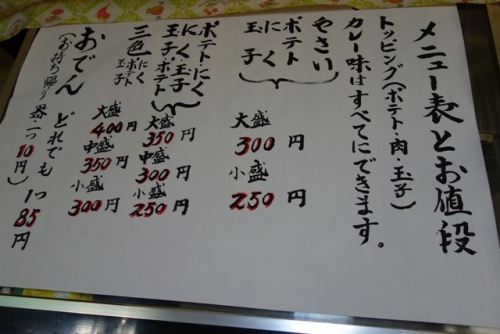 メニュー表とお値段
トッピング(ポテト・肉・玉子)
カレー味はすべてにできます。
やさい
ポテト
にく
玉子
大盛300円
小盛250円
ポテトにく
にく玉子
玉子ポテト
大盛350円
中盛300円
小盛250円
三色 にく ポテト 玉子
大盛400円
中盛350円
小盛300円
おでん どれでも1つ85円
(お持ち帰り器一つ10円)